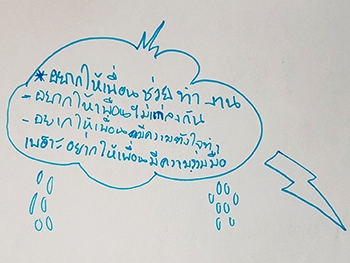 *อยากให้เพื่อนช่วยทำงาน
-อยากให้เพื่อนไม่แกล้งกัน
-อยากให้เพื่อนมีความตั้งใจทำ
เพราะอยากให้เพื่อนมีความร่วมมือ